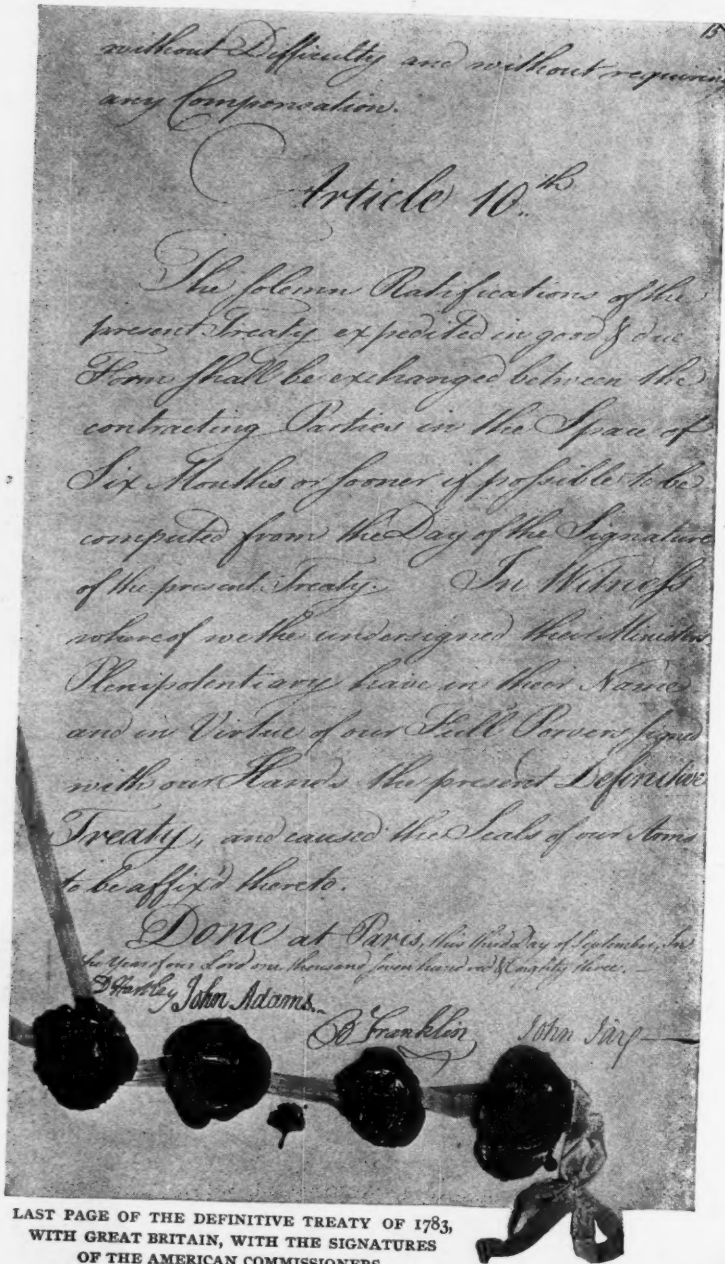 15
without Difficulty and without requiring
any Compensation.
Article 10.th
The solemn Ratifications of the
present Treaty expedited in good & due
Form shall be exchanged between the
contracting Parties in the Space of
Six Months or sooner if possible to be
computed from the Day of the Signature
of the present Treaty. In Witness
whereof we the undersigned their Ministers
Plenipotentiary have in their Name
and in Virtue of our Full Powers signed
with our Hands the present Definitive
Treaty, and caused the Seals of our Arms
to be affix'd thereto.
Done at Paris, this third Day of September, In
the Year of our Lord one thousand seven hundred & eighty three.
D Hartley John Adams.
B Franklin John Jay
LAST PAGE OF THE DEFINITIVE TREATY OF 1783,
WITH GREAT BRITAIN, WITH THE SIGNATURES
OF THE AMERICAN COMMISSIONERS